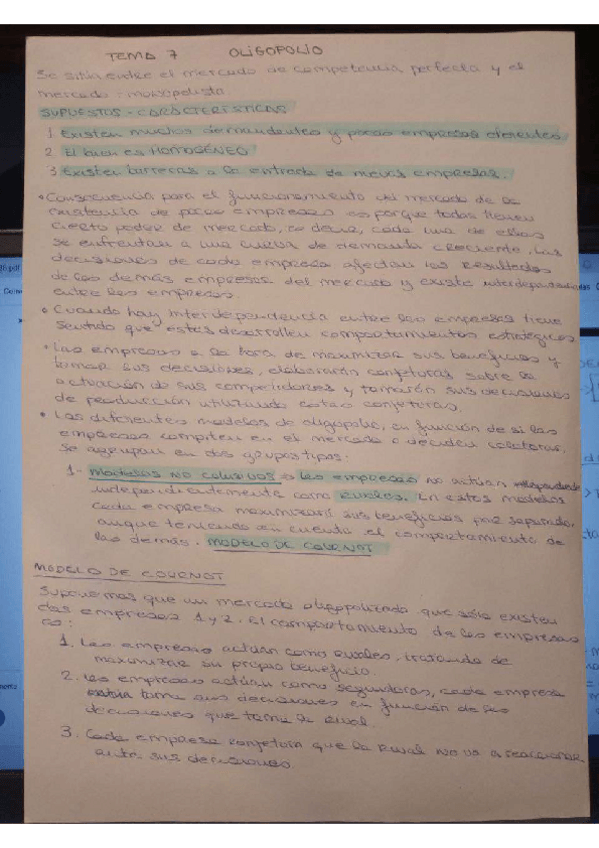 TEMA 7 OLIGOPOLIO
Se sitúa entre el mercado de competencia perfecta y el
mercado monopolista
SUPUESTOS - CARACTERÍSTICAS
1 Existen muchos demandantes y pocas empresas oferentes
2 El bien es HOMOGÉNEO
3 Existen barreras a la entrada de nuevas empresas.
• Consecuencia para el funcionamiento del mercado de la
existencia de pocas empresas es porque todas tienen
cierto poder de mercado, es decir, cada una de ellas
se enfrentan a una curva de demanda creciente. Las
decisiones de cada empresa afectan los resultados
de las demás empresas del mercado y existe interdependencia
entre las empresas.
• Cuando hay interdependencia entre las empresas tiene
sentido que estas desarrollen comportamientos estratégicos
• Las empresas a la hora de maximizar sus beneficios y
tomar sus decisiones, elaborarán conjeturas sobre la
actuación de sus competidores y tomarán sus decisiones
de producción utilizando estas conjeturas.
• Los diferentes modelos de oligopolio, en función de si las
empresas compiten en el mercado o deciden coludirse,
se agrupan en dos grupos tipos:
1- Modelos NO COLUSIVOS → las empresas no actúan
independientemente como rivales. En estos modelos
cada empresa maximizará sus beneficios por separado,
aunque teniendo en cuenta el comportamiento de
las demás. MODELO DE COURNOT
MODELO DE COURNOT
Suponemos que un mercado oligopolizado que sólo existen
dos empresas 1 y 2. El comportamiento de las empresas
es:
1. Las empresas actúan como rivales, tratando de
maximizar su propio beneficio.
2. Las empresas actúan como seguidoras, cada empresa
toma sus decisiones en función de las
decisiones que tome la rival.
3. Cada empresa conjetura que la rival NO va a reaccionar
ante sus decisiones.